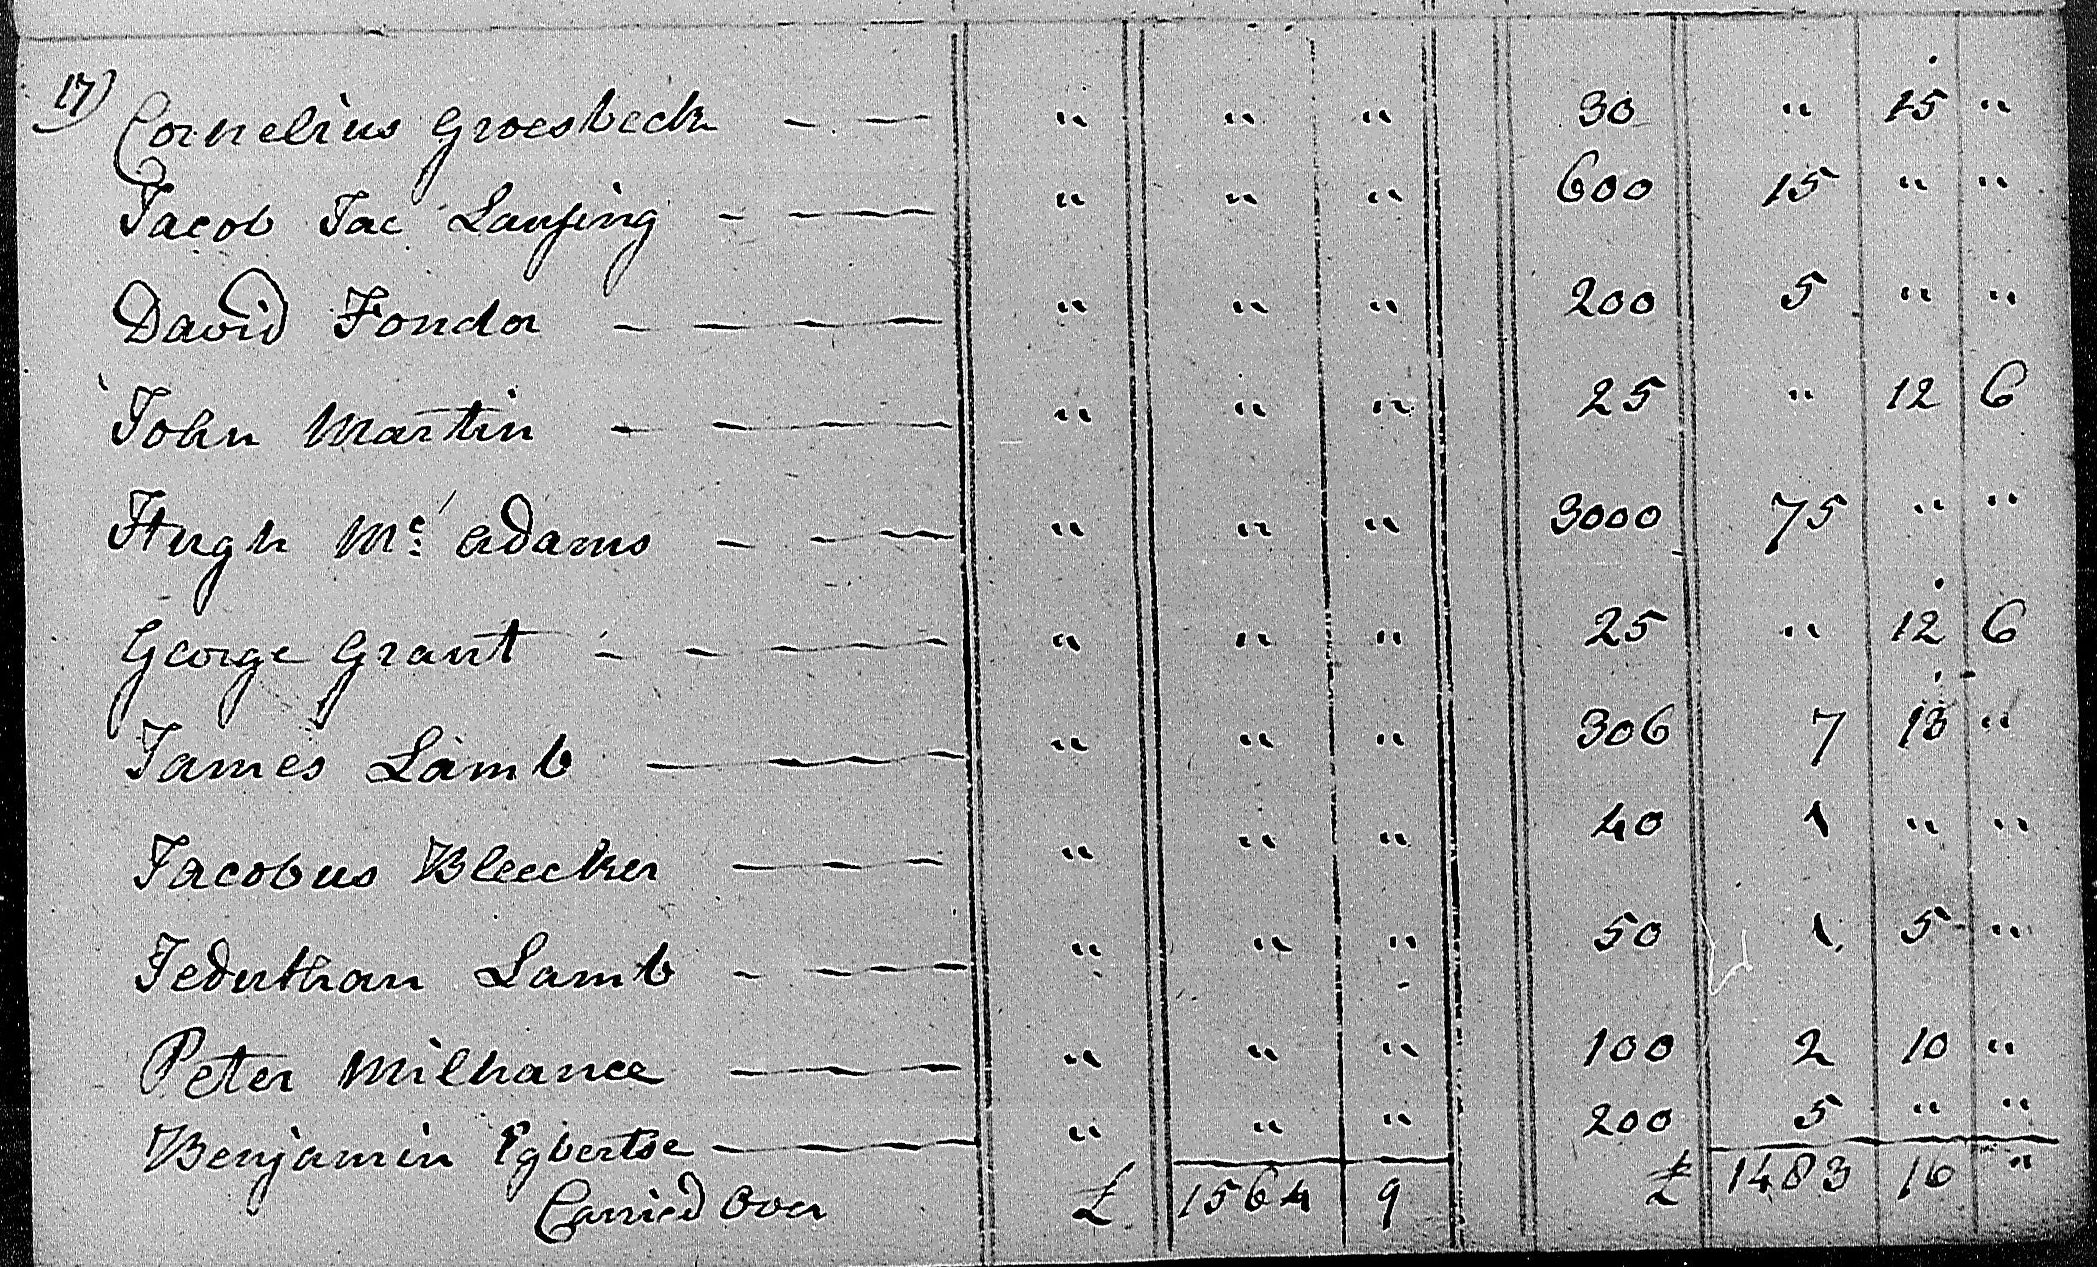 17) Cornelius Groesbeck — — " " " 30 " 15 "
Jacob Jac Lansing - — — " " " 600 15 " "
David Fonda — — — — " " " 200 5 " "
John Martin — — — — " " " 25 " 12 6
Hugh Mc: Adams — — — " " " 3000 75 " "
George Grant — — — — " " " 25 " 12 6
James Lamb — — — — " " " 306 7 13 "
Jacobus Bleecker — — — " " " 40 1 " "
Jeduthan Lamb - — — — " " " 50 1 5 "
Peter Milhance — — — " " " 100 2 10 "
Benjamin Egbertse — — — — " " " 200 5 " "
Carried Over £ 1564 9 £ 1483 16 "